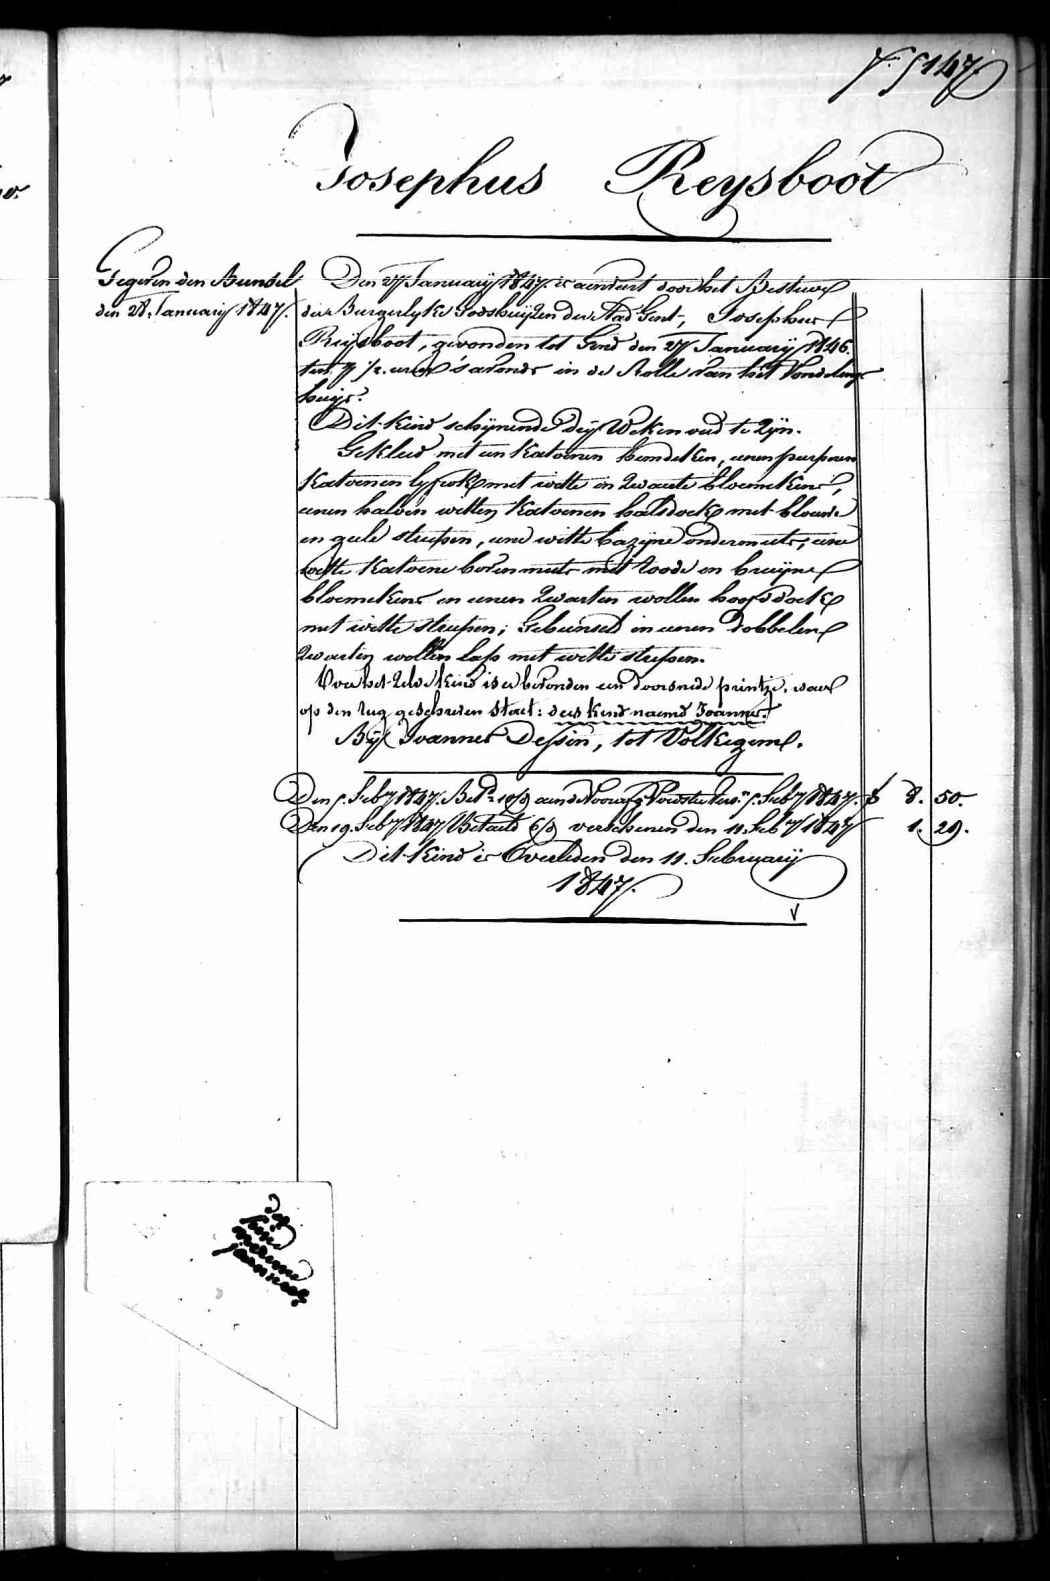 147
Josephus Reysboot
Gegeven den Bunsel
den 28. January 1847.
Den 27 January 1847. is aenveirt door het Bestuur
der Burgerlyke Godshuijzen der Stad Gent, Josephus
Reijsboot, gevonden tot Gend den 27 January 1846.
ten 7 1/2 uren s'avonds in de Rolle van het Vondeling
huijs.
Dit Kind schynende dry Weken oud te Zijn.
Gekleed met een Katoenen hemdeken, eenen purpuren
Katoenen lyfrok met witte en Zwarte bloemekens,
eenen halven witten Katoenen halsdoek met blauwe
en geele streepen, eene witte bazyne ondermuts, eene
witte Katoene bovenmuts met roode en bruijne
bloemekens en eenen Zwarten wollen hoofddoek
met witte streepen; Gebunseld in eenen dobbelen
Zwarten wollen lap met witte streepen.
Voor het Zelve Kind is er bevonden een doorsnede printje, waer
op den rug geschreven staet: deis kind naemd Joannes.
By Joannes Dessin, tot Volkegem.
Den 5. Feb.y 1847. Bet. aen de Voorz. 5. Feb.y 1847. f 8. 50.
Den 19. Feb.y 1847 Betaeld verschenen den 11 Feb.y 1847 1. 29.
Dit Kind is Overleden den 11. February
1847.
kind
joannes